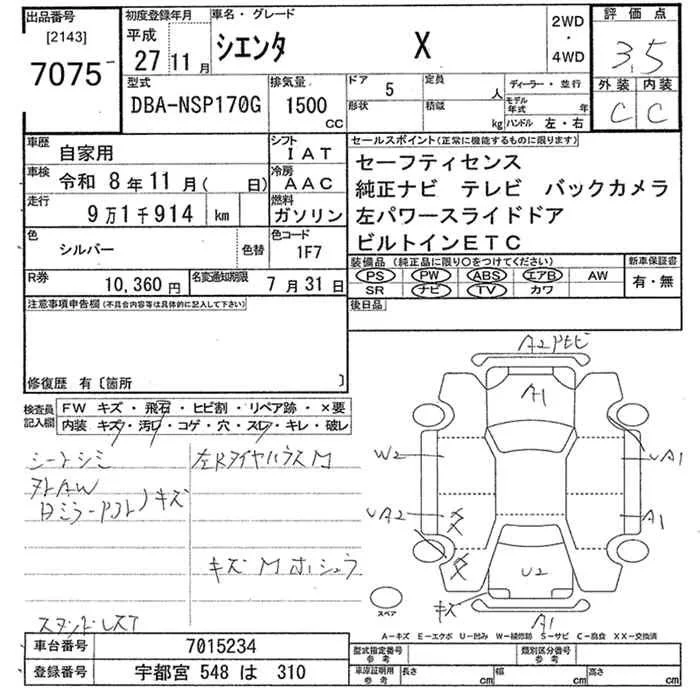 出品番号
[2143]
7075
初度登録年月
平成
27 11月
車名・グレード
シエンタ X
2WD
・
4WD
評価点
3.5
外装 内装
C C
型式
DBA-NSP170G
排気量
1500
CC
ドア 5
形状
定員 人
積載 kg
ディーラー・並行
モデル年式 年
ハンドル 左・右
車歴 自家用
シフト IAT
車検 令和 8年 11月( 日)
冷房 AAC
走行 9万1千914 km
燃料 ガソリン
色 シルバー 色替
色コード 1F7
R券 10,360円
名変通知期限 7月31日
セールスポイント(正常に機能するものに限ります)
セーフティセンス
純正ナビ テレビ バックカメラ
左パワースライドドア
ビルトインETC
装備品(純正品に限り○をつけてください)
PS PW ABS エアB AW
SR ナビ TV カワ
新車保証書
有・無
後日品
注意事項申告欄(不具合内容等は具体的に記入して下さい)
修復歴 有〔箇所 〕
検査員記入欄
FW キズ・飛石・ヒビ割・リペア跡・×要
内装 キズ・汚レ・コゲ・穴・スレ・キレ・破レ
シートシミ
キズ
キズ M ホシュウ
A2
A1
W2
UA1
UA2
A1
U2
キズ
A1
スペア
A−キズ E−エクボ U−凹み W−補修跡 S−サビ C−腐食 XX−交換済
車台番号 7015234
登録番号 宇都宮 548 は 310
型式指定番号参考
類別区分番号参考
車庫証明用参考 長さ cm 幅 cm 高さ cm